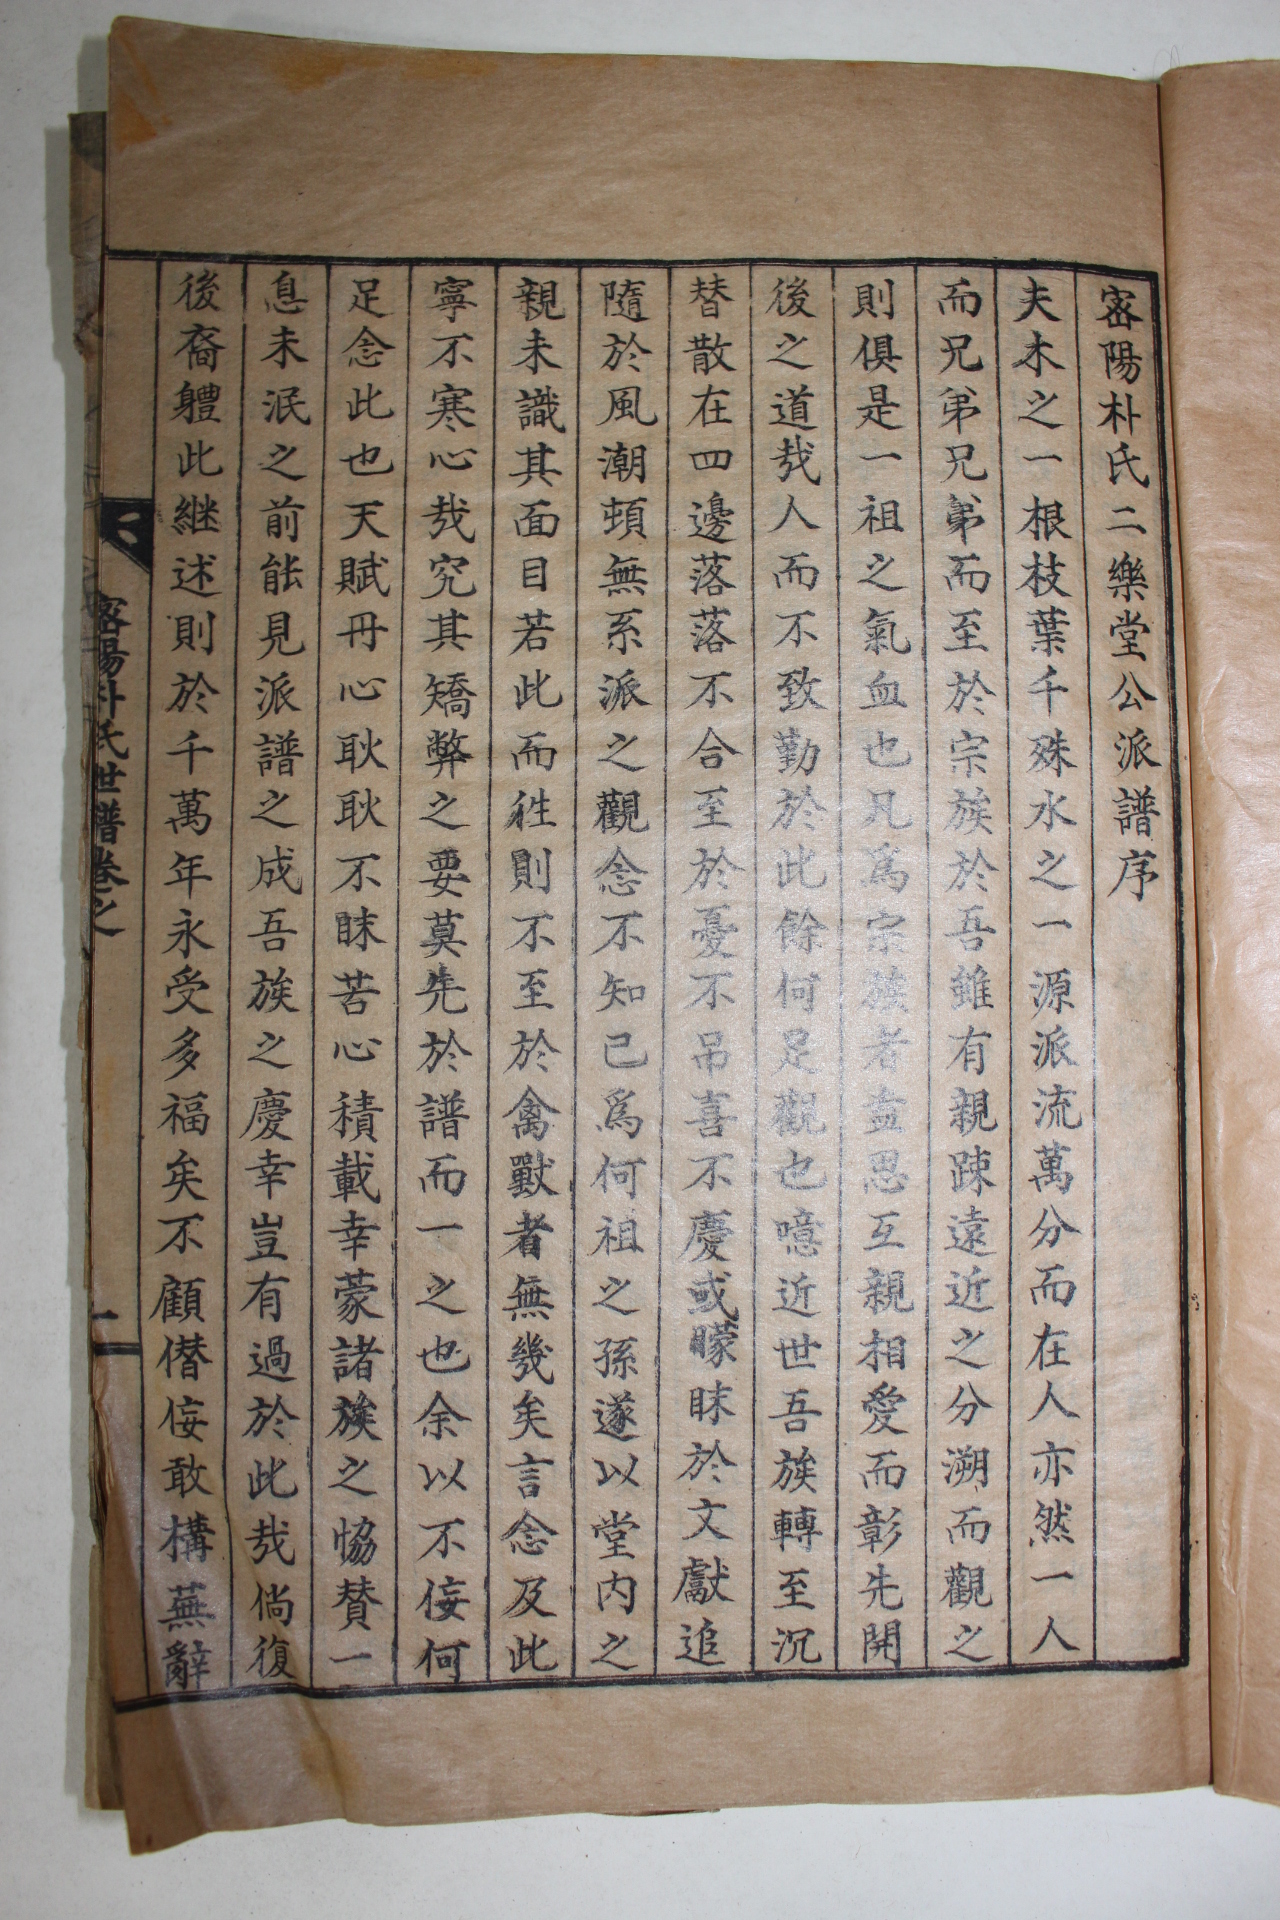 密陽朴氏二樂堂公派譜序
夫木之一根枝葉千殊水之一源派流萬分而在人亦然一人
而兄弟兄弟而至於宗族於吾雖有親踈遠近之分溯而觀之
則俱是一祖之氣血也凡爲宗族者益思互親相愛而彰先開
後之道哉人而不致勤於此餘何足觀也噫近世吾族轉至沉
替散在四邊落落不合至於憂不吊喜不慶或曚昧於文獻追
隨於風潮頓無系派之觀念不知已爲何祖之孫遂以堂内之
親未識其面目若此而徃則不至於禽獸者無幾矣言念及此
寧不寒心哉究其矯弊之要莫先於譜而一之也余以不侫何
足念此也天賦丹心耿耿不昧苦心積載幸蒙諸族之恊賛一
息未泯之前能見派譜之成吾族之慶幸豈有過於此哉倘復
後裔軆此継述則於千萬年永受多福矣不顧僣侫敢構蕪辭
密陽朴氏世譜卷之
一